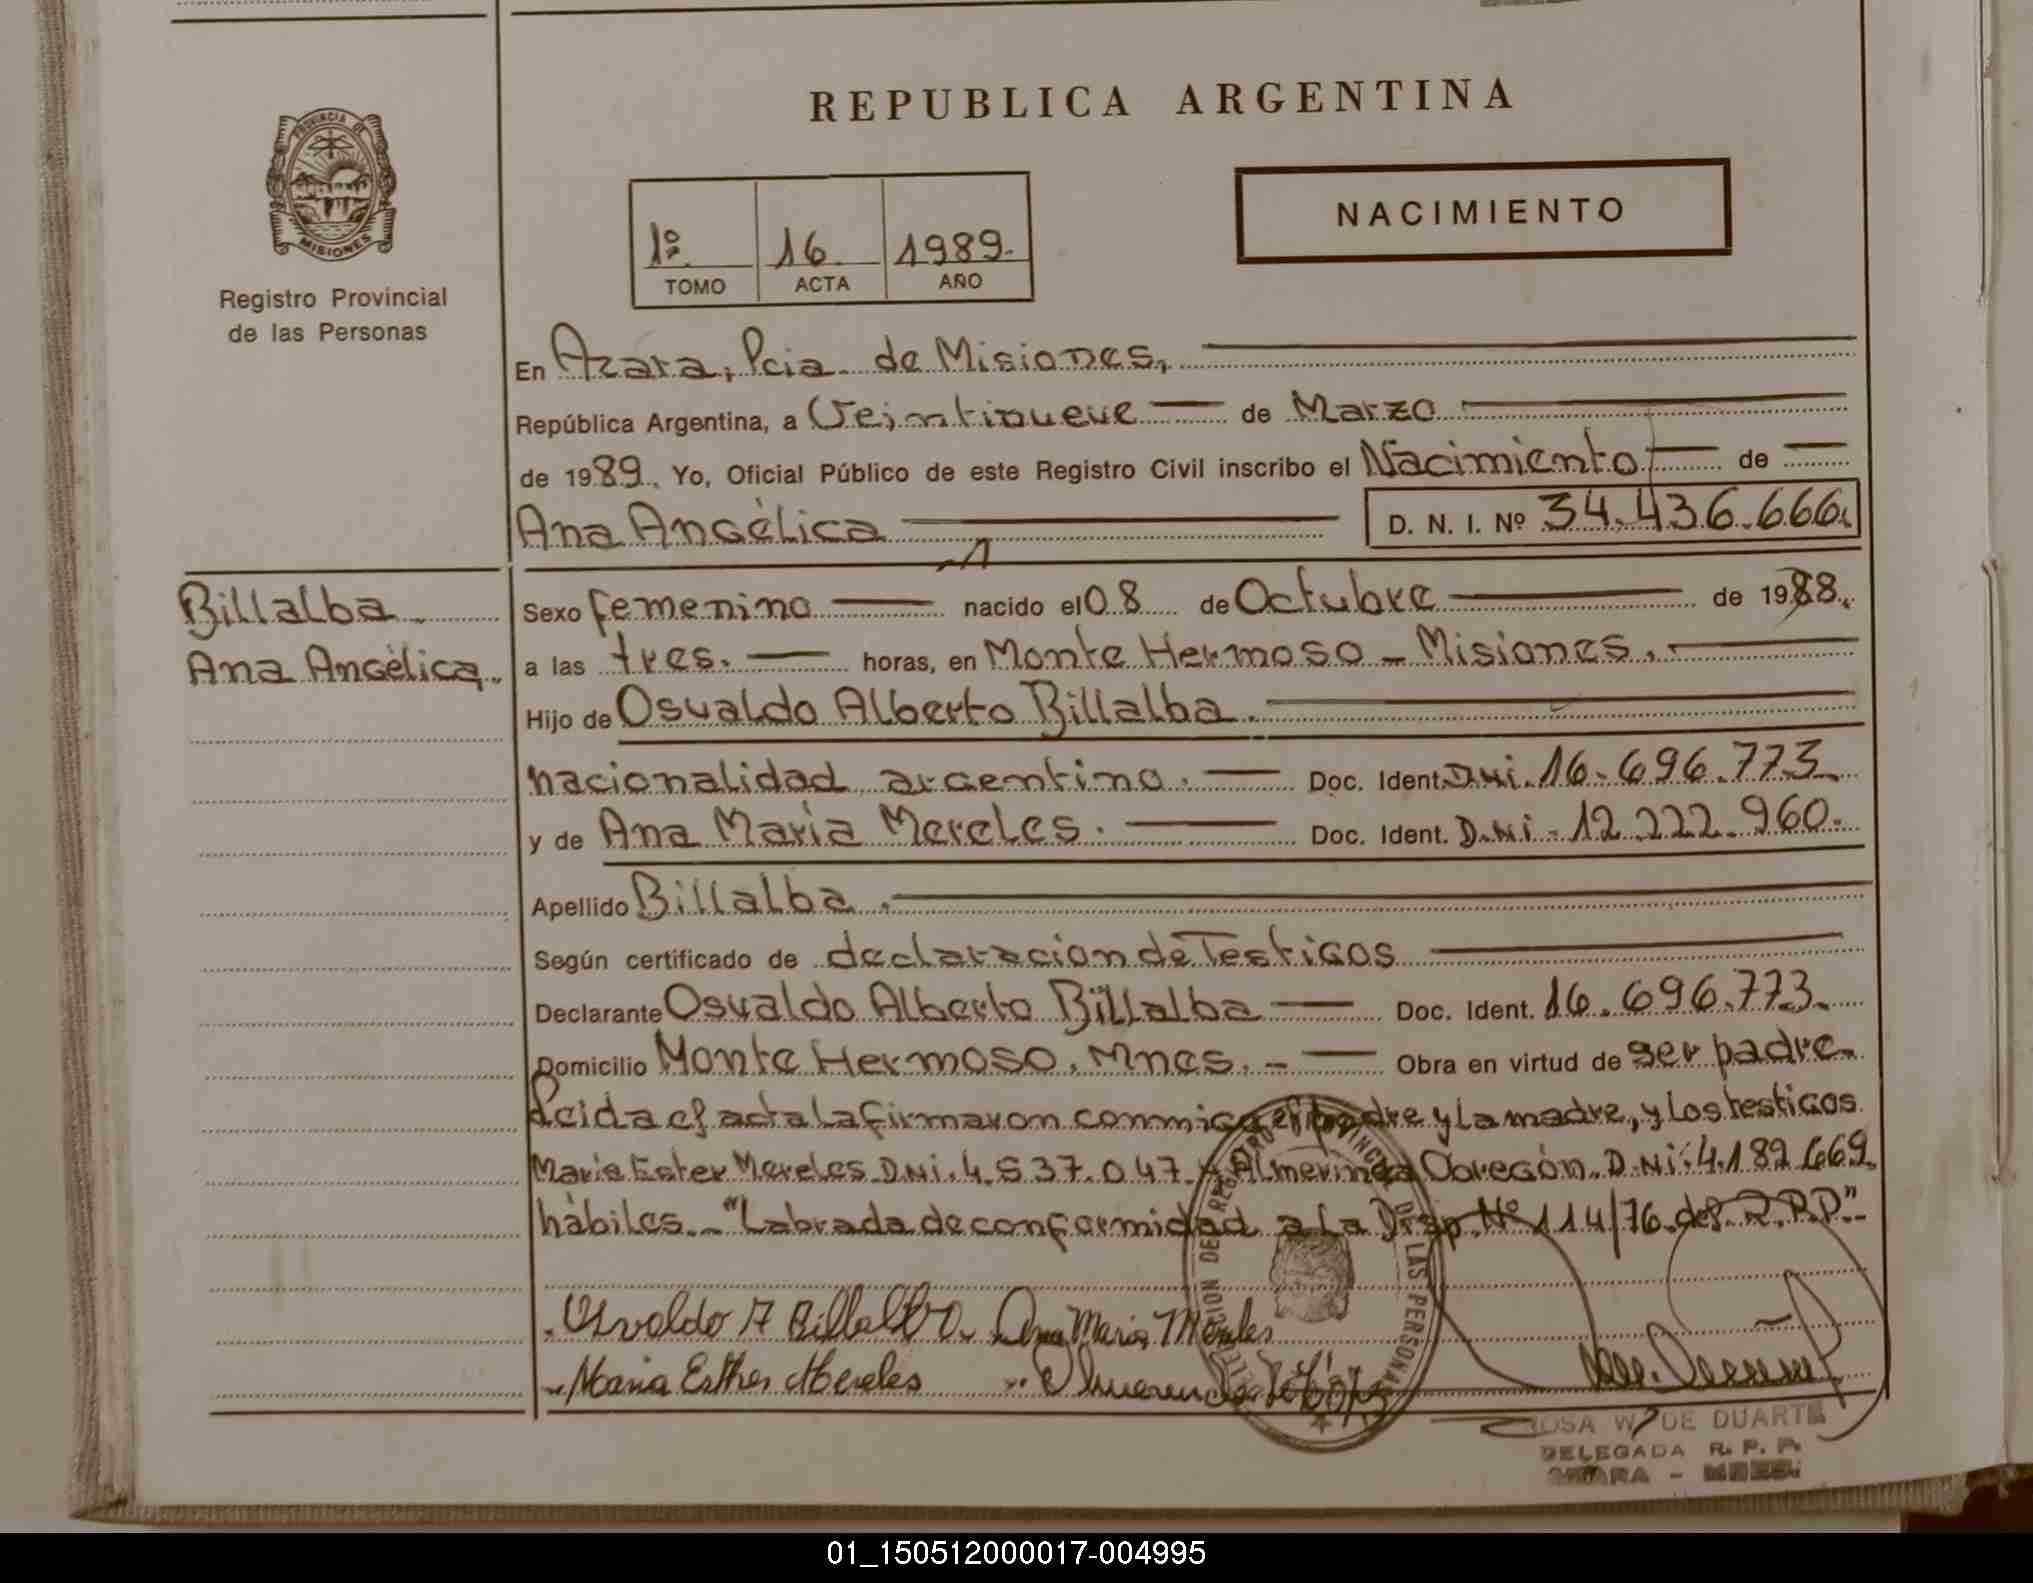 REPUBLICA ARGENTINA
PROVINCIA DE
MISIONES
Registro Provincial
de las Personas
1º 16 1989.
TOMO ACTA AÑO
NACIMIENTO
En Azara, Pcia de Misiones,
República Argentina, a Veintinueve de Marzo
de 1989. Yo, Oficial Público de este Registro Civil inscribo el Nacimiento de
Ana Angélica D. N. I. Nº 34.436.666.
Billalba
Ana Angélica.
Sexo femenino nacido el 08 de Octubre de 1988.
a las tres. horas, en Monte Hermoso - Misiones.
Hijo de Osvaldo Alberto Billalba.
nacionalidad argentino. Doc. Ident. DNi. 16.696.773.
y de Ana María Mereles. Doc. Ident. D.Ni. 12.222.960.
Apellido Billalba.
Según certificado de declaracion de Testigos
Declarante Osvaldo Alberto Billalba Doc. Ident. 16.696.773.
Domicilio Monte Hermoso, Mnes. Obra en virtud de ser padre.
Leida el acta la firmaron conmigo el padre y la madre, y los testigos
María Ester Mereles DNi. 4.537.047 y Almerinda Obregón. D.Ni. 4.189.669.
hàbiles. - "Labrada de conformidad a la Disp. Nº 114/76. del R.P.P."
Osvaldo A Billalba. Ana Maria Mereles
Maria Esther Mereles
DELEGACION DEL REGISTRO PROVINCIAL DE LAS PERSONAS
ROSA W. DE DUARTE
DELEGADA R. P. P.
AZARA - MNES.
01_150512000017-004995